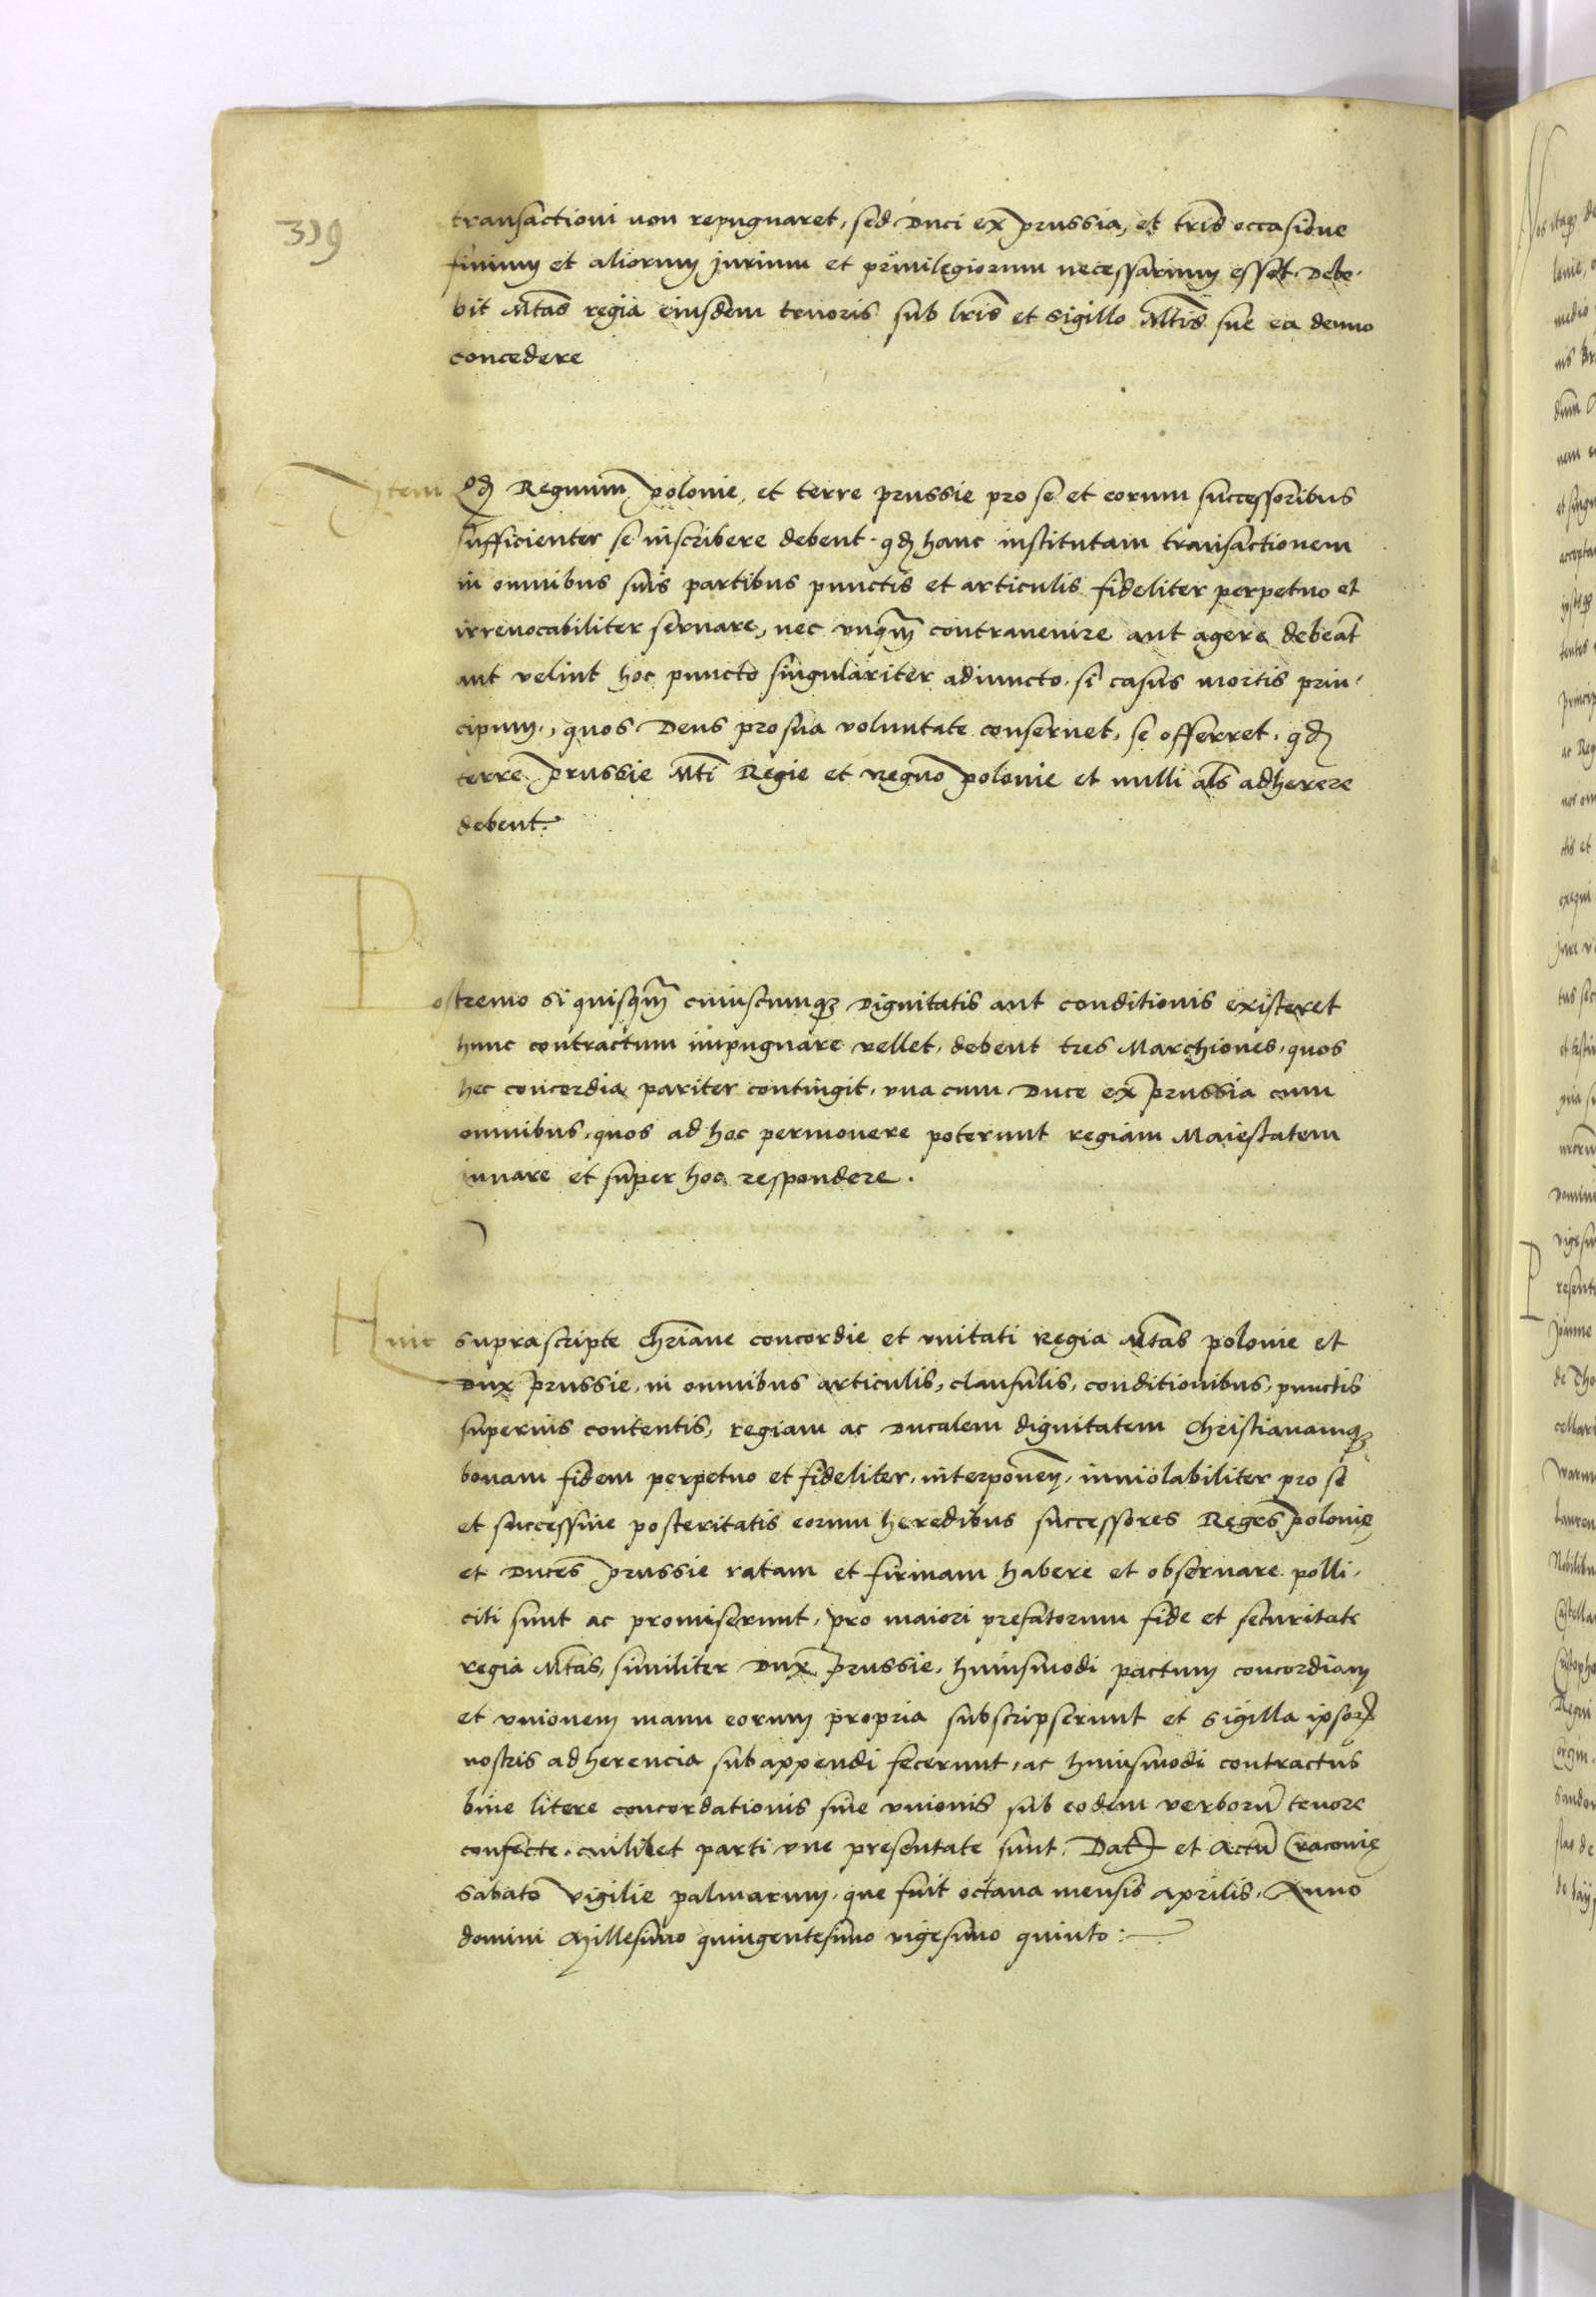 319
transactioni non repugnaret, sed Duci ex prussia, et tris occasione
finium et aliorum jurium et privilegiorum necessarium esset. Debe-
bit Mtas regia eiusdem tenoris sub lris et sigillo Mtis sue ea denuo
concedere
Item qd Regnum polonie, et terre prussie pro se et eorum successoribus
sufficienter se inscribere debent. qd hanc institutam transactionem
in omnibus suis partibus punctis et articulis fideliter perpetuo et
irrevocabiliter servare, nec unqm contravenire aut agere debeat
aut velint hoc puncto singulariter adiuncto. si casus mortis prin-
cipum, quos Deus pro sua voluntate conservet, se offerret. qd
terre prussie Mti Regie et regno polonie et nulli als adherere
debent.
Postremo si quisqm cuiuscumq dignitatis aut conditionis existeret
hunc contractum impugnare vellet, debent tres Marchiones, quos
hec concordia pariter contingit, una cum Duce ex prussia cum
omnibus, quos ad hoc permovere poterunt regiam Maiestatem
iuvare et super hoc respondere.
Huic suprascripte chriane concordie et unitati regia Mtas polonie et
Dux prussie, in omnibus articulis, clausulis, conditionibus, punctis
superius contentis, regiam ac Ducalem dignitatem Christianamq
bonam fidem perpetuo et fideliter, interponen, inviolabiliter pro se
et successive posteritatis eorum heredibus successores Reges polonie
et Duces prussie ratam et firmam habere et observare polli-
citi sunt ac promiserunt, pro maiori prefatorum fide et securitate
regia Mtas, similiter Dux prussie, huiusmodi pactum concordiam
et unionem manu eorum propria subscripserunt et sigilla ipsor
nostris adherencia subappendi fecerunt, ac huiusmodi contractus
bine litere concordationis sive unionis sub eodem verboru tenore
confecte, cuilibet parti une presentate sunt. Dat et Actu Cracovie
sabato vigilie palmarum, que fuit octava mensis aprilis, Anno
domini Millesimo quingentesimo vigesimo quinto :—